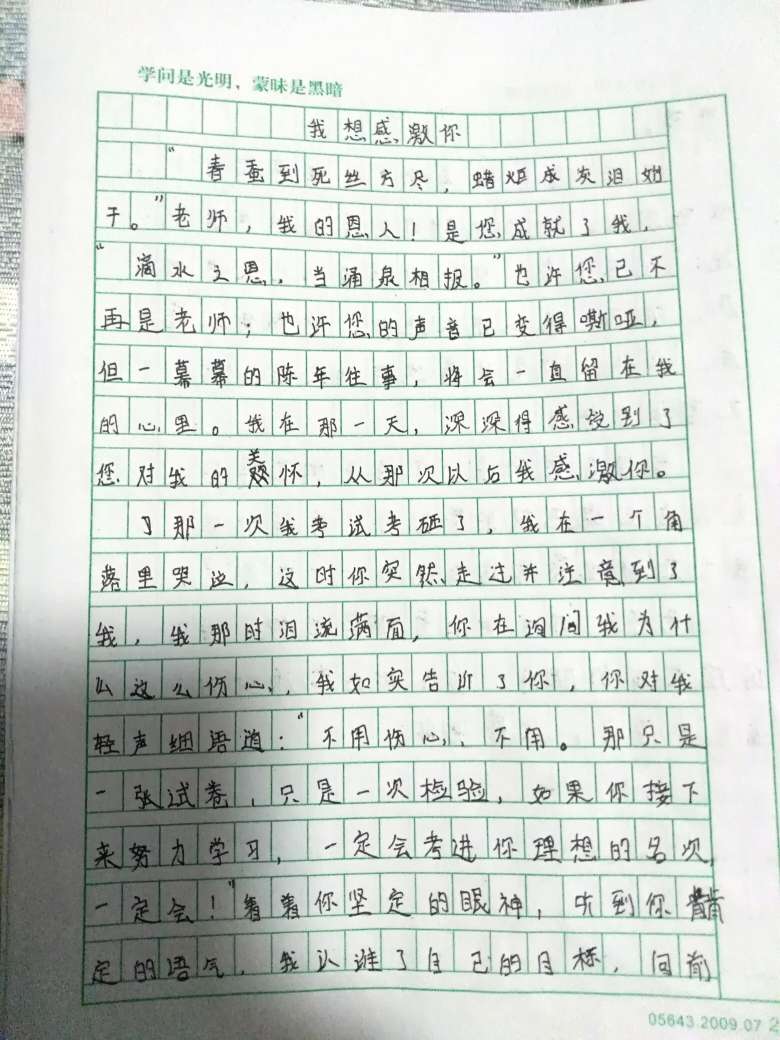 学问是光明，蒙昧是黑暗
我想感激你
“春蚕到死丝方尽，蜡炬成灰泪始
干。”老师，我的恩人！是您成就了我，
“滴水之恩，当涌泉相报。”也许您已不
再是老师；也许您的声音已变得嘶哑，
但一幕幕的陈年往事，将会一直留在我
的心里。我在那一天，深深得感受到了
您对我的关怀，从那次以后我感激你。
那一次我考试考砸了，我在一个角
落里哭泣，这时你突然走过并注意到了
我，我那时泪流满面，你在询问我为什
么这么伤心，我如实告诉了你，你对我
轻声细语道：“不用伤心，不用。那只是
一张试卷，只是一次检验，如果你接下
来努力学习，一定会考进你理想的名次，
一定会！”看着你坚定的眼神，听到你肯
定的语气，我认准了自己的目标，向前
05643.2009.07 2